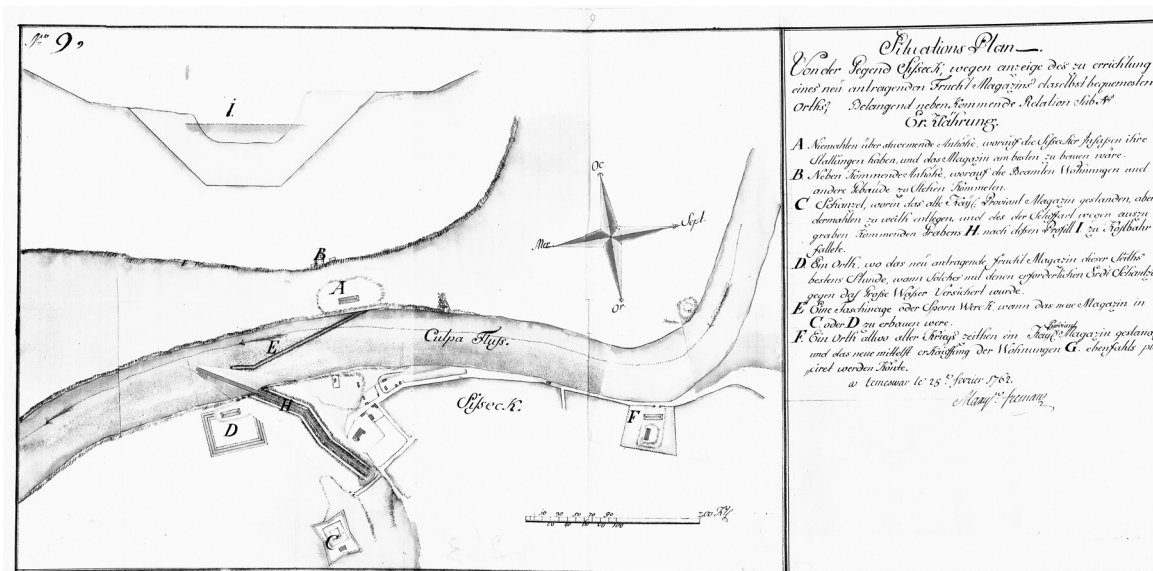 Nro 9,
9
Situations Plan
Von der Gegend Sisseck, wegen anzeige des zu errichtung
eines neü antragenden Frucht Magazins daselbst bequemesten
Orths, Belangend neben Kommende Relation Sub No
Er-Klährung.
A Niemahlen über schwemende Anhöhe, worauf die Sissecker Insassen ihre
Stallungen haben, und das Magazin am besten zu bauen wäre.
B Neben Kommende Anhöhe, worauf die Beamten Wohnungen und
andere Gebaude zu Stehen Kommeten.
C Schanzel, worin das alte Kaysl. Proviant Magazin gestanden, aber
dermahlen zu weith entlegen, und des der Schiffart wegen auszu
graben Kommenden Grabens H nach dessen Profill I zu Kostbahr
fallete.
D. Ein Orth, wo das neü antragende frucht Magazin dieser Seiths
bestens Stunde, wann Solches mit denen erforderlichen Erdt Schantzen
gegen das Große Wasser Versichert wurde.
E Eine Faschinage oder Sporn Werck, wann das neue Magazin in
C oder D zu erbauen were.
F. Ein Orth allwo alter Kriegs zeithen ein Kaysl. Proviant Magazin gestanden
und das neue mittelst der Wohnungen G. ebenfahls
werden Könte.
Temeswar le 25 fevrier 1762.
I.
Oc.
Sept.
Me.
Or
B
A
E
Culpa Fluss.
H
Sisseck.
D
F
C
10 30 50 70 90
20 40 60 80 100
200